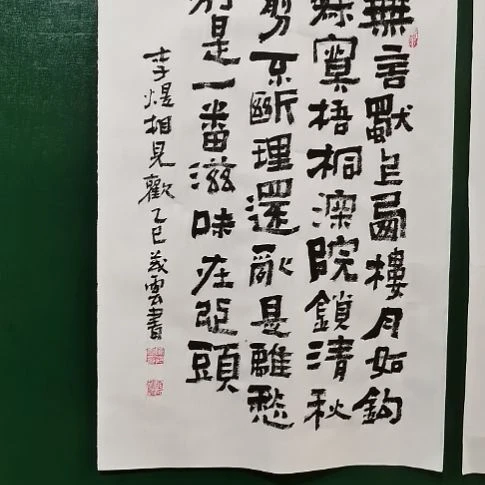 無言獨上西樓月如鈎
寂寞梧桐深院鎖清秋
剪不斷理還亂是離愁
別是一番滋味在心頭
李煜相見歡乙巳茂雲書